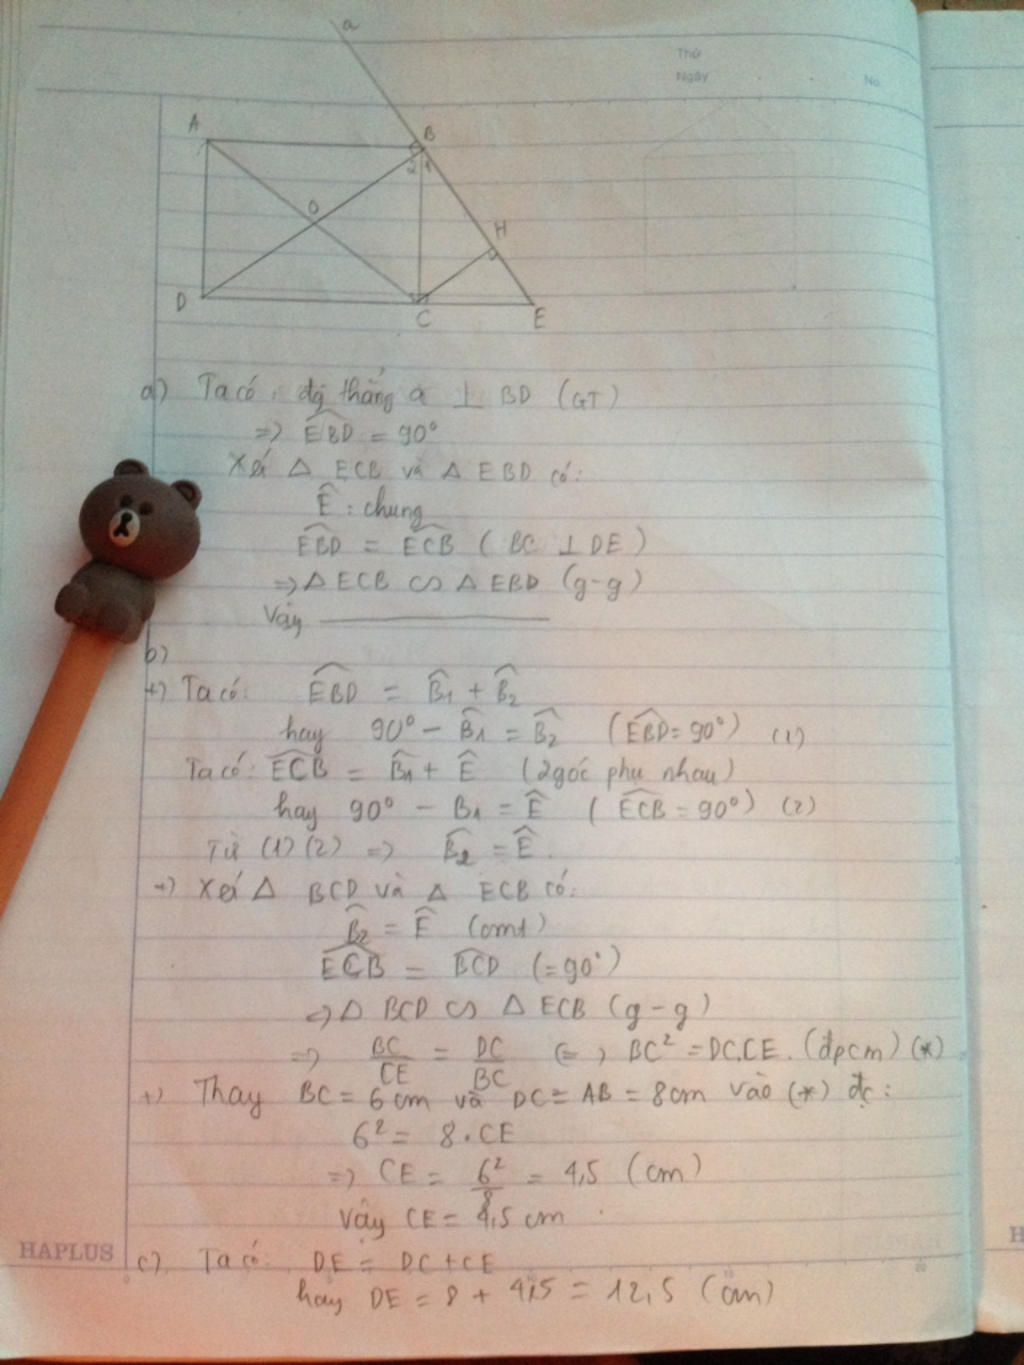 a
Thứ
Ngày
No.
A
B
2 1
O
H
D
C
E
a) Ta có: đg thẳng a ⊥ BD (GT)
=> EBD = 90°
Xét △ ECB và △ EBD có:
Ê : chung
EBD = ECB ( BC ⊥ DE )
=> △ ECB ∽ △ EBD (g-g)
Vậy
b)
+) Ta có: EBD = B̂1 + B̂2
hay 90° - B̂1 = B̂2 (EBD = 90°) (1)
Ta có: ECB = B̂1 + Ê (2 góc phụ nhau)
hay 90° - B1 = Ê ( ECB = 90°) (2)
Từ (1) (2) => B̂2 = Ê.
+) Xét △ BCD và △ ECB có:
B̂2 = Ê (cmt)
ECB = BCD (=90°)
=> △ BCD ∽ △ ECB (g-g)
=> BC/CE = DC/BC (=) BC² = DC.CE. (đpcm) (*)
+) Thay BC = 6cm và DC = AB = 8cm vào (*) đc:
6² = 8.CE
=> CE = 6²/8 = 4,5 (cm)
Vậy CE = 4,5 cm.
HAPLUS
c) Ta có: DE = DC + CE
hay DE = 8 + 4,5 = 12,5 (cm)